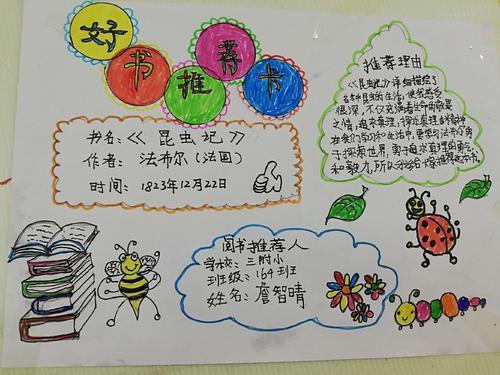 好书推荐卡
书名:《昆虫记》
作者:法布尔(法国)
时间:1823年12月22日
推荐理由
《昆虫记》详细描绘了
各种昆虫的生活,使我感受
很深,不仅充满着生命的敬畏
之情,追求真理、探求真理的精神
在我们学习和生活中,更要向法布尔勇
于探索世界、勇于追求真理的勇气
和毅力,所以我给你推荐这本书。
图书推荐人
学校:三附小
班级:164班
姓名:詹智晴